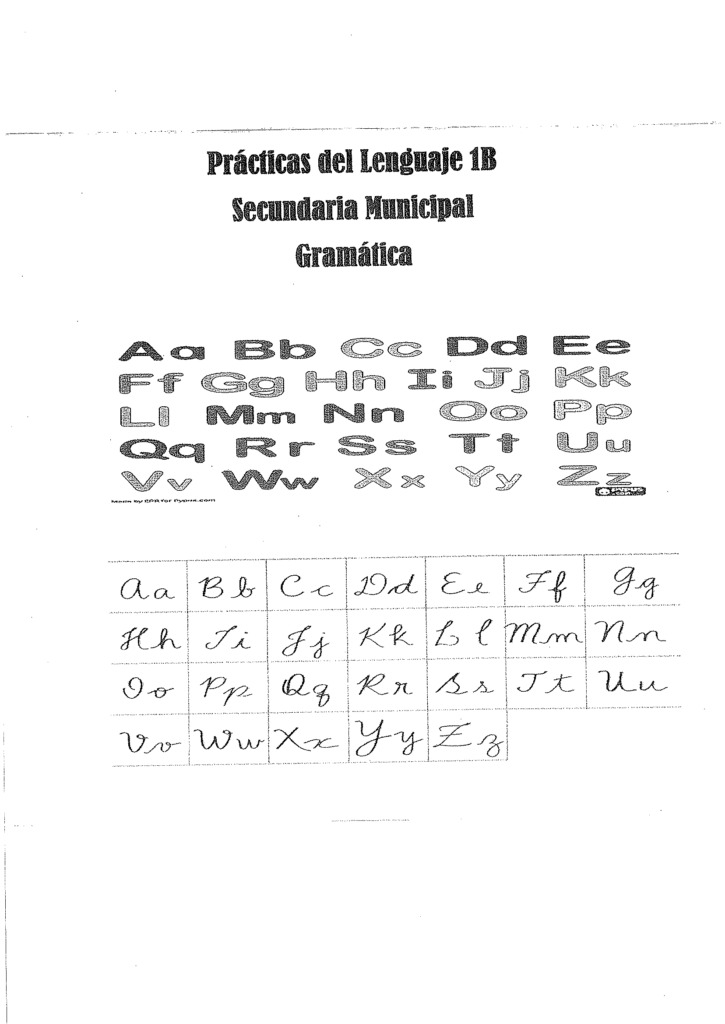 Prácticas del Lenguaje 1B
Secundaria Municipal
Gramática
Aa Bb Cc Dd Ee
Ff Gg Hh Ii Jj Kk
Ll Mm Nn Oo Pp
Qq Rr Ss Tt Uu
Vv Ww Xx Yy Zz
Made by for
Aa Bb Cc Dd Ee Ff Gg
Hh Ii Jj Kk Ll Mm Nn
Oo Pp Qq Rr Ss Tt Uu
Vv Ww Xx Yy Zz